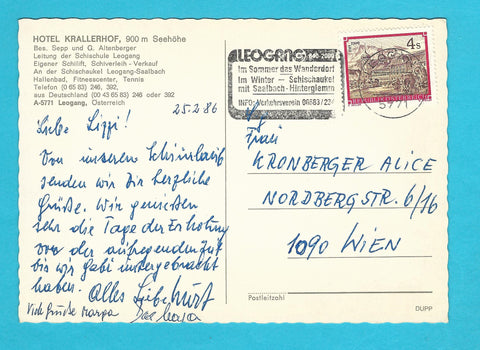 HOTEL KRALLERHOF, 900 m Seehöhe
Bes. Sepp und G. Altenberger
Leitung der Schischule Leogang
Eigener Schilift, Schiverleih - Verkauf
An der Schischaukel Leogang-Saalbach
Hallenbad, Fitnesscenter, Tennis
Telefon (0 65 83) 246, 392,
aus Deutschland (00 43 65 83) 246 oder 392
A-5771 Leogang, Österreich
25.2.86
Liebe Lizzi!
Von unserem Schiurlaub
senden wir Dir herzliche
Grüße. Wir genießen
sehr die Tage der Erholung
von der aufregenden Zeit
bis wir Gabi untergebracht
haben. Alles Liebe Kurt
Viele Grüße
LEOGANG
Im Sommer das Wanderdorf
Im Winter - Schischaukel
mit Saalbach-Hinterglemm
INFO: Verkehrsverein 06583/234
4 S
REPUBLIK ÖSTERREICH
Frau
KRONBERGER ALICE
NORDBERGSTR. 6/16
1090 WIEN
Postleitzahl
DUPP